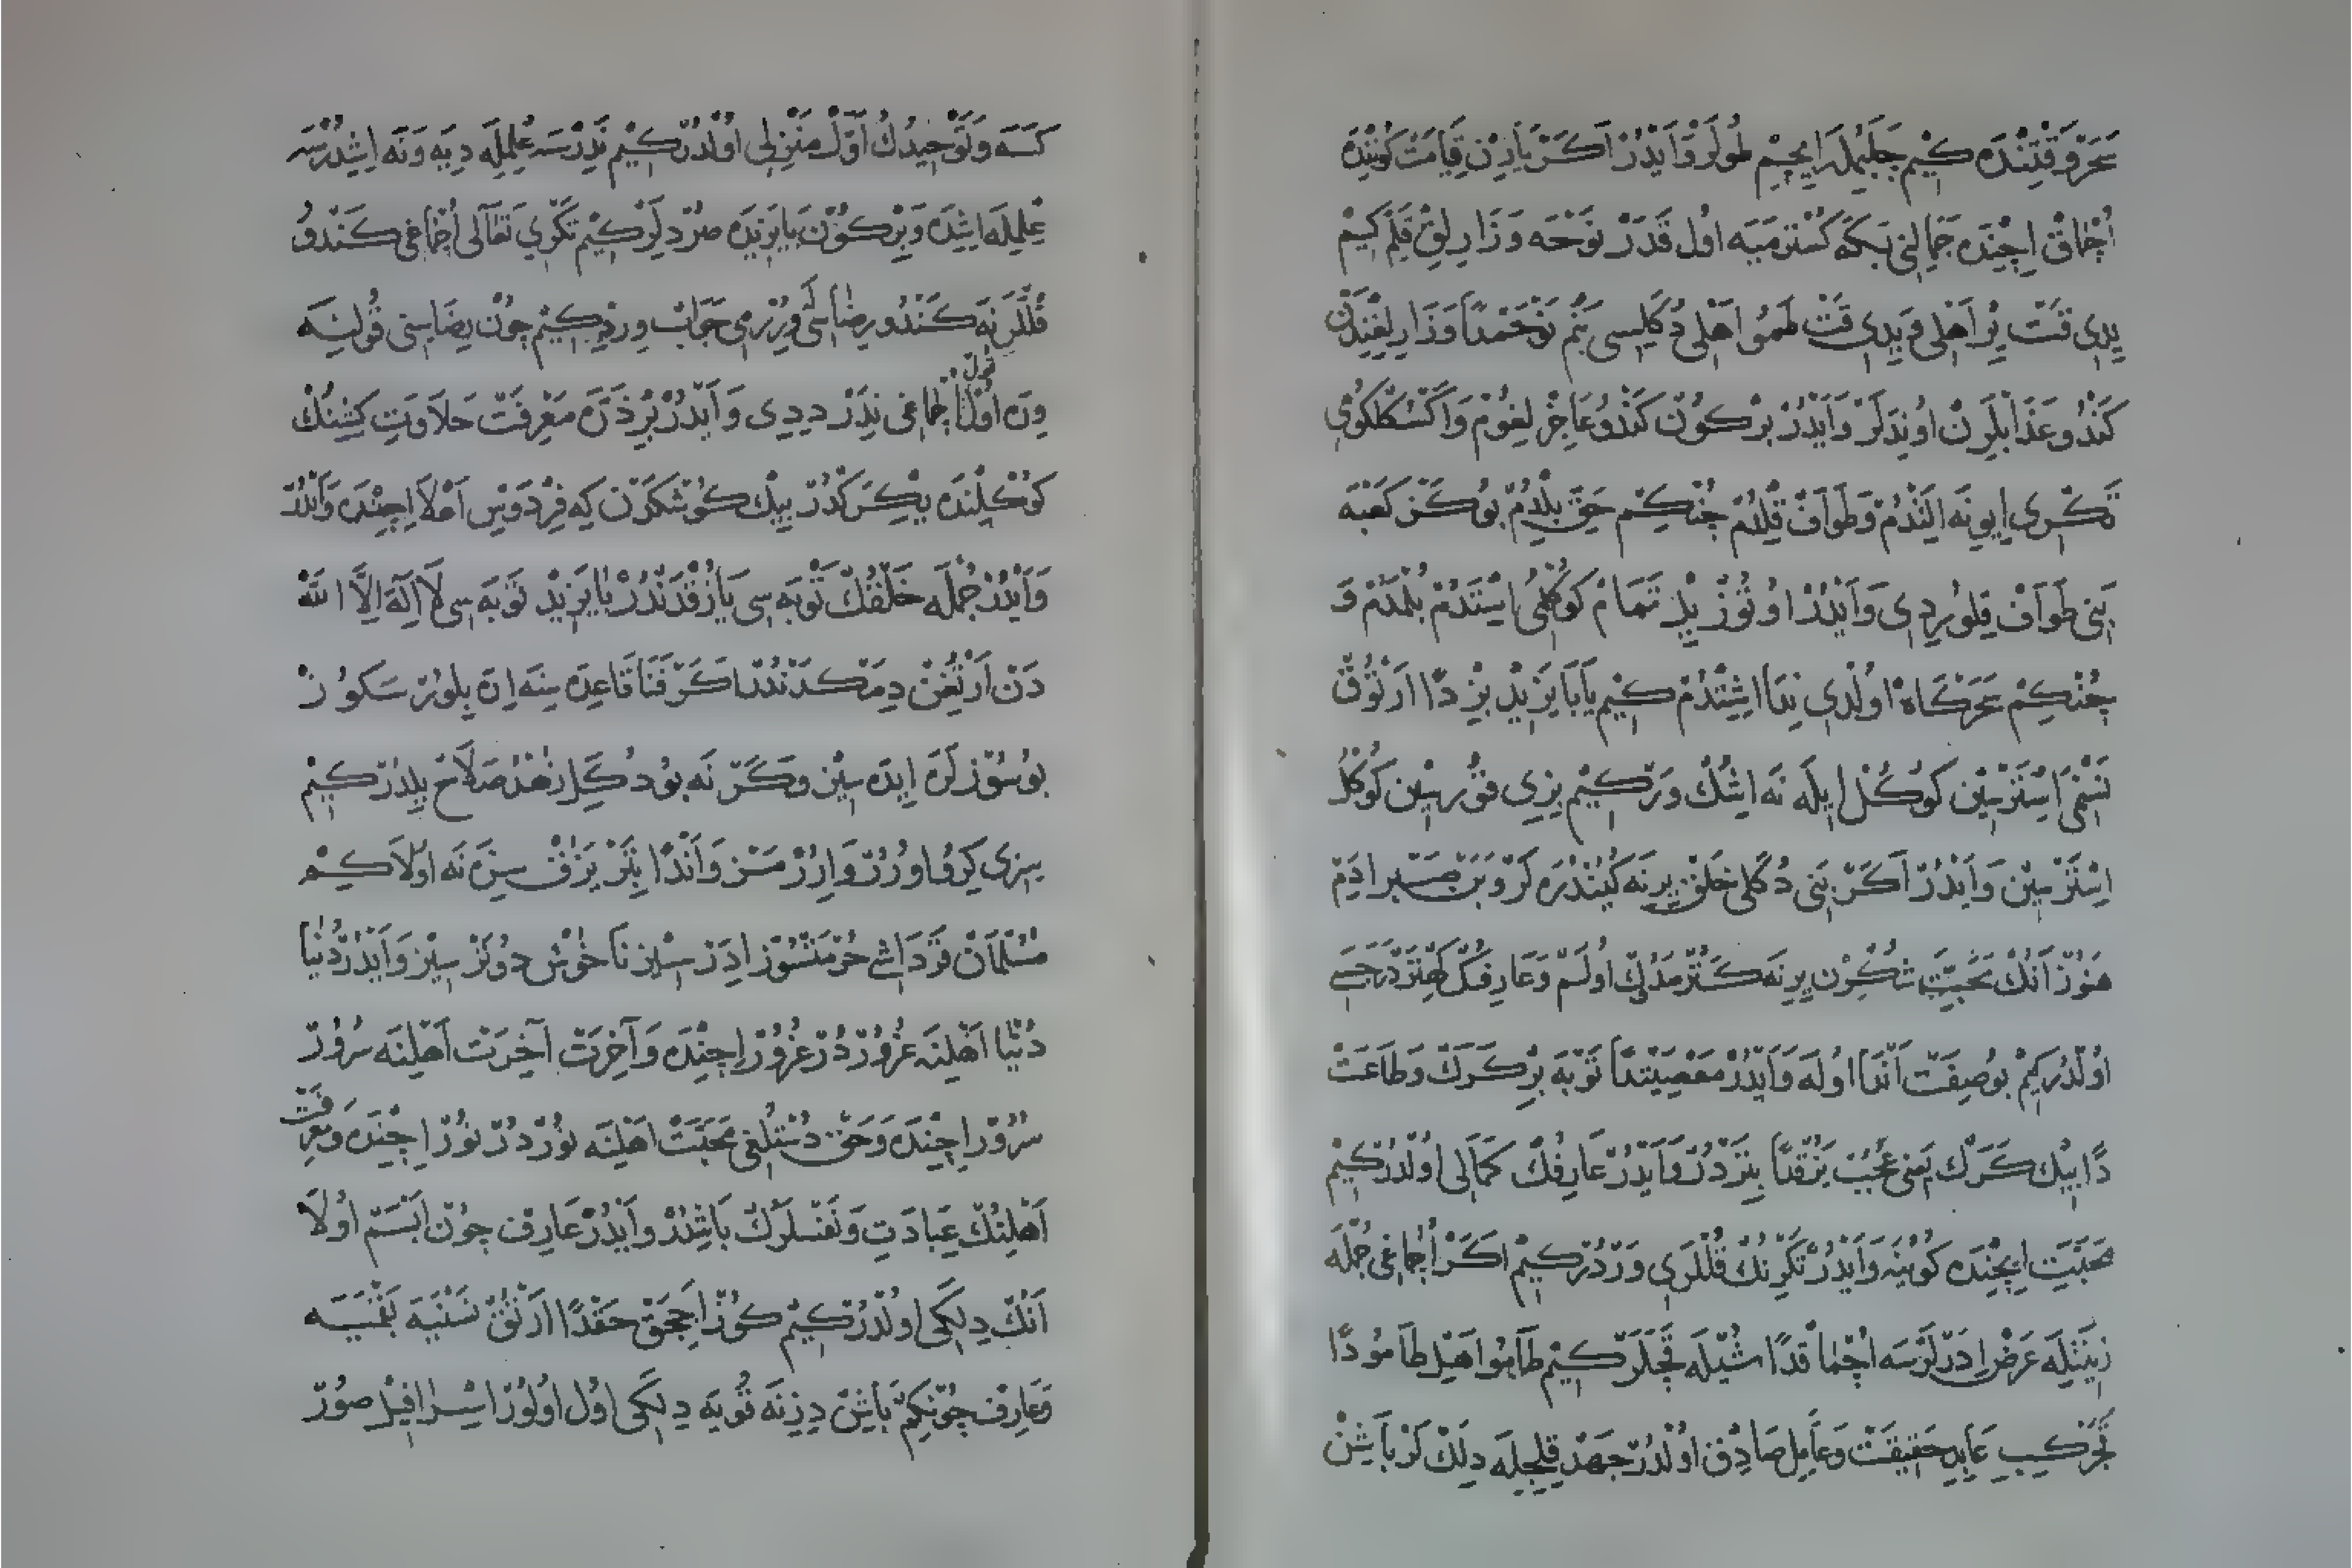 سَحَرْ وَقْتِنْدَه كِيْم جَلَبُمْلَه اِيچِم طُولَرْ وَاَيْدُرْ اَكَرْ يَارِنْ قِيَامَتْ كُونِنْدَه
اُچْمَاقْ اِچِنْدَه جَمَالِنِى بَكَه كُسْتَرْمَيَه اول قَدَرْ نَوْحَه وَزَارِلِقْ قِلَم كِيْم
يِدِى قَتْ يِرْ اَهْلِى وَيِدِى قَتْ طَمُو اَهْلِى دُكَلِيسِى بَنُم نَوْحَمْدَا وَزَارِلِغِمْدَنْ
كَنْدُو عَذَابْلَرِنْ اُونِدَلَرْ وَاَيْدُرْ بِرْ كُونْ كَنْدُو عَاجِزْلِغُومْ وَاَكْسُكْلِكُومِى
تَكْرِى اِيوِنَه اِلَتْدُمْ وَطَوَافْ قِلْدُمْ چُنْكِمْ حَقّ بِلْدُمْ بُو كَزْ كَعْبَه
بَنِى طَوَافْ قِلُورِدِى وَاَيْدُرْ اوُتُوزْ يِلْ تَمَامْ كوُكْلُمِى اِيسْتَدُمْ بُلْمَدُمْ وَ
چُنْكِمْ سَحَرْكَاهْ اوُلْدِى نِدَا اِشِتْدُمْ كِيْم يَا بَا يَزِيْدْ بِزْدَا اَرْتُوقْ
نَسْنَمِى اِسْتَرْسِيْن كوُكُلْ اِيلَه نَه اِشُكْ وَرْ كِيْم بِزِى قوُرْسِيْن كوُكُلْ
اِسْتَرْسِيْن وَاَيْدُرْ اَكَرْ بَنِى دُكَلِى خَلْقْ يِرِنَه كَيُنْدُرَه لَرْ وَبَنْ صَبْر اِدَمْ
هَنُوزْ اَنُكْ مَحَبَّتِ شُكْرِنْ يِرِنَه كَتُرْمَدُكْ اوُلَمْ وَعَارِفُكْ كَمْتَرْ دَرَجَسِى
اوُلْدُرْ كِيْم بوُ صِفَتْ اَنْدَا اوُلَه وَاَيْدُرْ مَعْصِيَتْدَا تَوْبَه بِرْ كَرَكْ وَطَاعَتْ
دَا بِيْكْ كَرَكْ يَعْنِى عُجُبْ يَزُقْدَا بِتَرْدُرْ وَاَيْدُرْ عَارِفُكْ كَمَالِى اوُلْدُرْ كِيْم
مَحَبَّتِ اِيچِنْدَه كوُيِنَه وَاَيْدُرْ تَكْرِنُكْ قُلْلَرِى وَرْدُرْ كِيْم اَكَرْ اُچْمَاغِى جُمْلَه
زِيْنَتِيلَه عَرْضْ اِدَرْلَرْسَه اُچْمَاقْدَا شُيْلَه قَچَلَرْ كِيْم طَامُو اَهْلِى طَامُودَا
قَچَرْ كِبِى عَابِدِ حَقِيقَتْ وَعَامِلِ صَادِقْ اوُلْدُرْ جَهْدْ قِلِچِيلَه دِلَكْلَرْ بَاشِنْ
كَسَه وَتَوْحِيدُكْ اَوَّلْ مَنْزِلِى اوُلْدُرْ كِيْم نَدِرْسَه عِلْمِلَه دِيَه وَنَه اِشِدُرْسَه
عِلْمِلَه اِشِدَه وَبِرْ كُونْ بَايَزِيدَه صُرْدِلَرْ كِيْم تَكْرِي تَعَالَى اُچْمَاغِى كَنْدوُ
قُلْلَرِنَه كَنْدُو رِضَاسُيْلَه وِرُرْمِى جَوَابْ وِرْدِ كِيْم چُونْ رِضَاسِنِى قُولِنَه
وِرَه اوُل قُولْ اُچْمَاغِى نِدَرْ دِدِى وَاَيْدُرْ بِرْ ذَرَّه مَعْرِفَتْ حَلَاوَتِ كِشِنُكْ
كوُكْلِنْدَه يِكْرَكْدُرْ بِيْكْ كوُشْكدَنْ كِه فِرْدَوْسِ اَعْلَا اِچِنْدَه وَاَيْدُرْ
وَاَيْدُرْ جُمْلَه خَلْقُكْ تَوْبَه سِى يَازُقْدَنْدُرْ بَايَزِيْدْ تَوْبَه سِى لَا اِلَهَ اِلَّا اللّٰه
دَنْ اَرْتُغِنْ دِمَكْدَنْدُرْ اَكَرْ فَنَا قَاعِدَه سِنَه اِرَه بِلوُرْسَكوُزْ
بوُ سُوزْلَرَه اِيدَه سِيْن وَكَرْ نَه بوُ دُكَلِ زُهْدُ صَلَاحْ يِلِدُرْ كِيْم
سِزِى كِيرُو اوُرُرْ وَارُرْسَزْ وَاَنْدَا بِتَرْ يَزُقْ سِزَه نَه اوُلَا كِيْم
مُسْلُمَانْ قَرْدَاشِى حُرْمَتْسُوزْ اِدَرْسِيْن نَاخُوشْ دوُتَرْسِيْز وَاَيْدُرْ دُنْيَا
دُنْيَا اَهْلِنَه غُرُورْدُرْ غُرُورْ اِچِنْدَه وَآخِرَتْ آخِرَتْ اَهْلِنَه سُرُورْ
سُرُورْ اِچِنْدَه وَحَقّ دُسْتْلُغِى مَحَبَّتْ اَهْلِنَه نُورْدُرْ نُورْ اِچِنْدَه وَمَعْرِفَتْ
اَهْلِنُكْ عِبَادَتِ وَنَفَسْلَرُكْ بَاشِدُرْ وَاَيْدُرْ عَارِفْ چوُنْ اَبْسَمْ اوُلَا
اَنُكْ دِلَكِى اوُلْدُرْ كِيْم كوُزْ اَچِجَقْ حَقْدَا اَرْتُقْ نَسْنَيَه بَقْمَيَه
وَعَارِفْ چوُنْكِمْ بَاشِنْ دِزِنَه قُويَه دِلَكِى اوُل اوُلوُرْ اِسْرَافِيلْ صُورْ